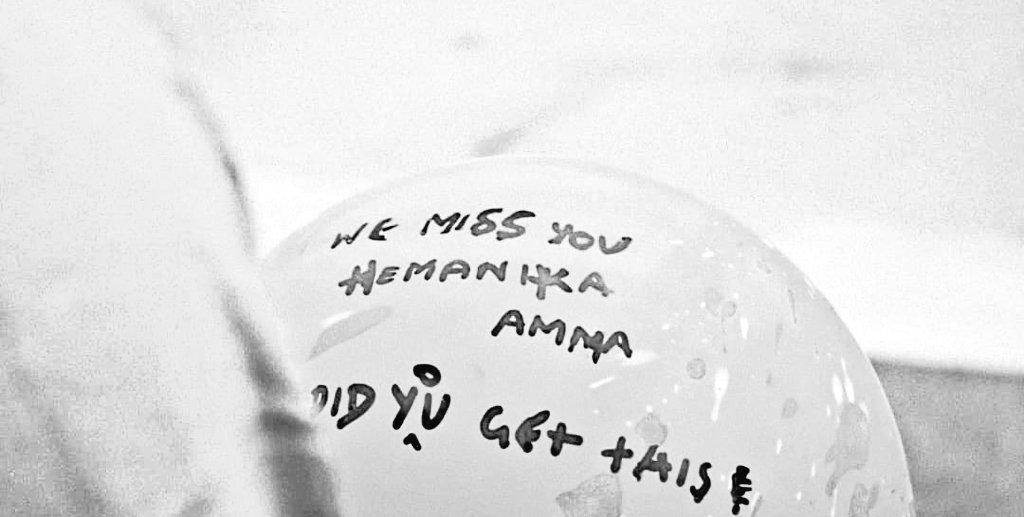 WE MISS YOU
HEMANIKA
AMMA
DID YOU GET THIS